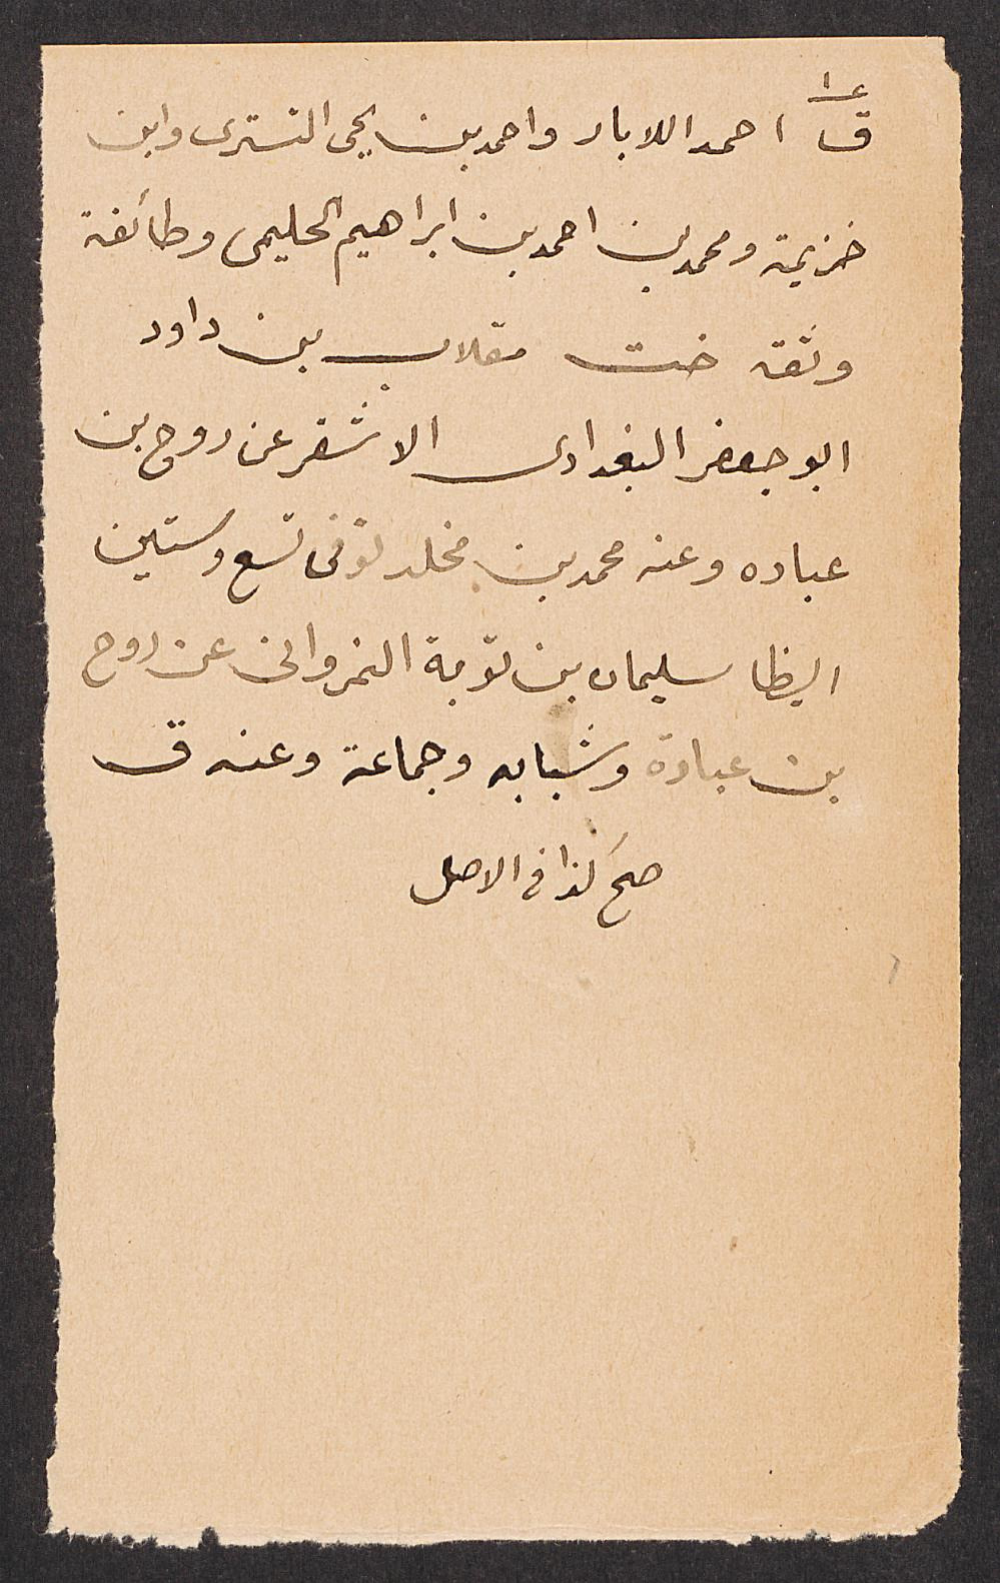 ق احمد اللابار واحمد بن يحيى التسترى وابن
خزيمة ومحمد بن احمد بن ابراهيم الحليمى وطائفة
وثقه خت بن داود
ابو جعفر البغدادى الاشقر عن روح بن
عباده وعنه محمد بن مخلد توفى تسع وستين
ايظا سليمان بن توبة النهروانى عن روح
بن عبادة وشبابه وجماعة وعنه ق
صح كذا فى الاصل